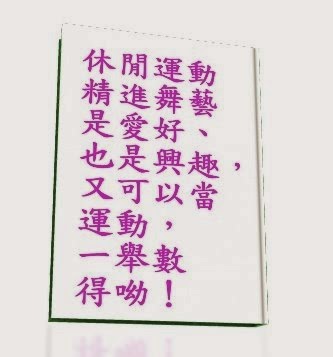 休閒運動
精進舞藝
是愛好、
也是興趣，
又可以當
運動，
一舉數
得呦！